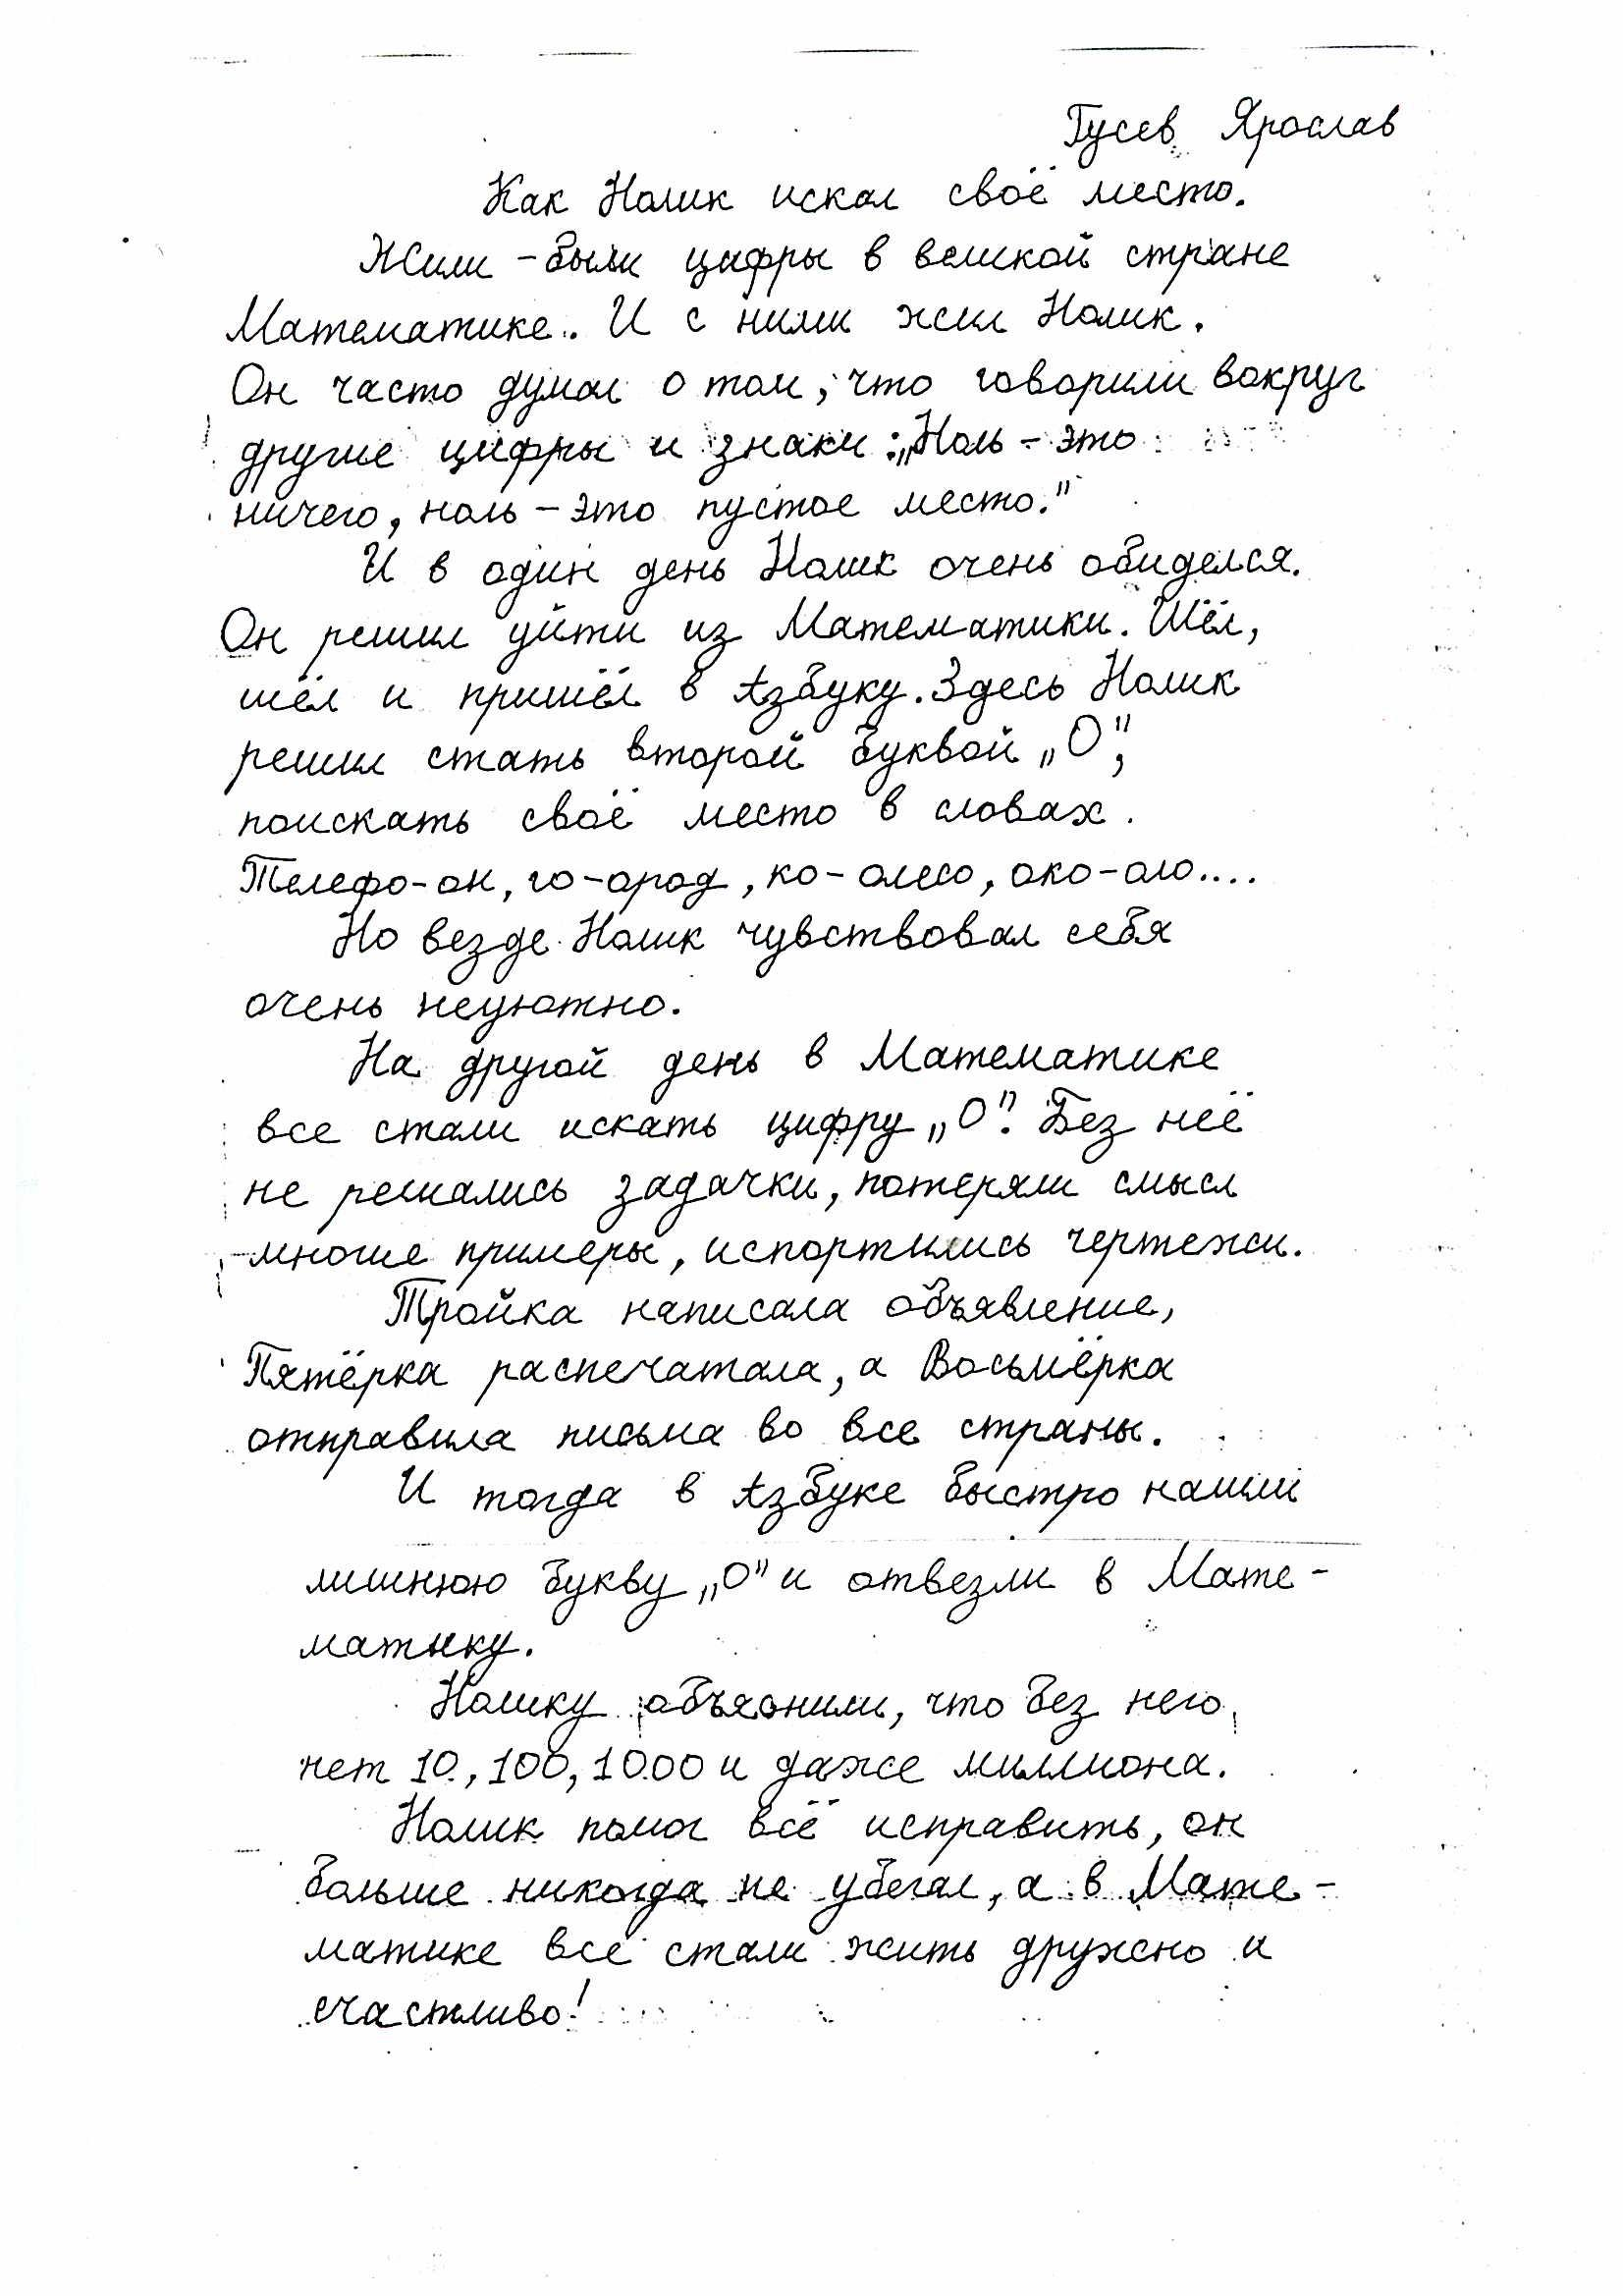 Гусев Ярослав
Как Нолик искал своё место.
Жили-были цифры в великой стране
Математике. И с ними жил Нолик.
Он часто думал о том, что говорили вокруг
другие цифры и знаки: „Ноль - это
ничего, ноль - это пустое место."
И в один день Нолик очень обиделся.
Он решил уйти из Математики. Шёл,
шёл и пришёл в Азбуку. Здесь Нолик
решил стать второй буквой „О",
поискать своё место в словах.
Телефо-он, го-ород, ко-олесо, око-оло....
Но везде Нолик чувствовал себя
очень неуютно.
На другой день в Математике
все стали искать цифру „0". Без неё
не решались задачки, потеряли смысл
многие примеры, испортились чертежи.
Тройка написала объявление,
Пятёрка распечатала, а Восьмёрка
отправила письма во все страны.
И тогда в Азбуке быстро нашли
лишнюю букву „О" и отвезли в Мате-
матику.
Нолику объяснили, что без него
нет 10, 100, 1000 и даже миллиона.
Нолик помог всё исправить, он
больше никогда не убегал, а в Мате-
матике все стали жить дружно и
счастливо!